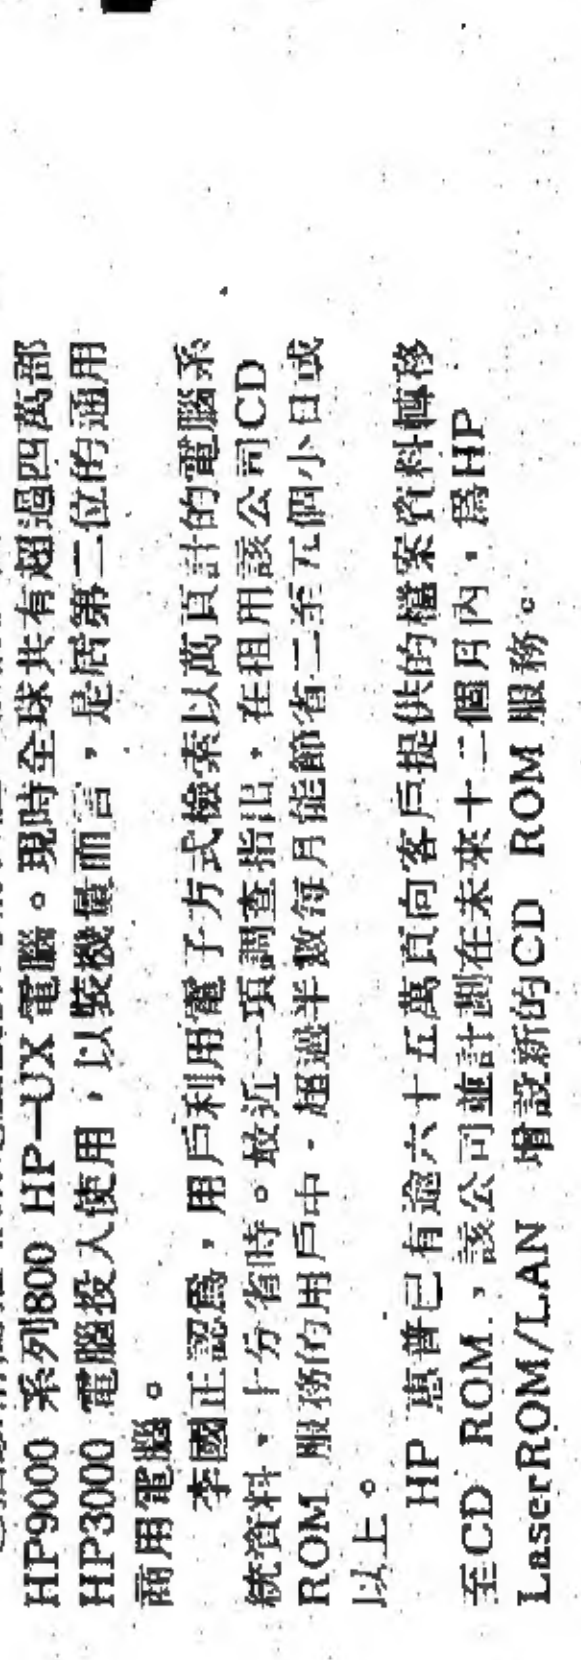 HP9000 系列800 HP-UX電腦。現時全球共有超過四萬部
HP3000 電腦投入使用，以裝機量而言，是居第二位的通用
商用電腦。
李國正認爲，用戶利用電子方式檢索以萬頁計的電腦系
統資料，十分省時。最近一項調查指出，在租用該公司CD
ROM 服務的用戶中，超過半數每月能節省二至五個小時或
以上。
HP 惠普已有逾六十五萬頁向客戶提供的檔案資料轉移
至CD ROM，該公司並計劃在未來十二個月內，爲HP
LaserROM/LAN 增設新的CD ROM 服務。